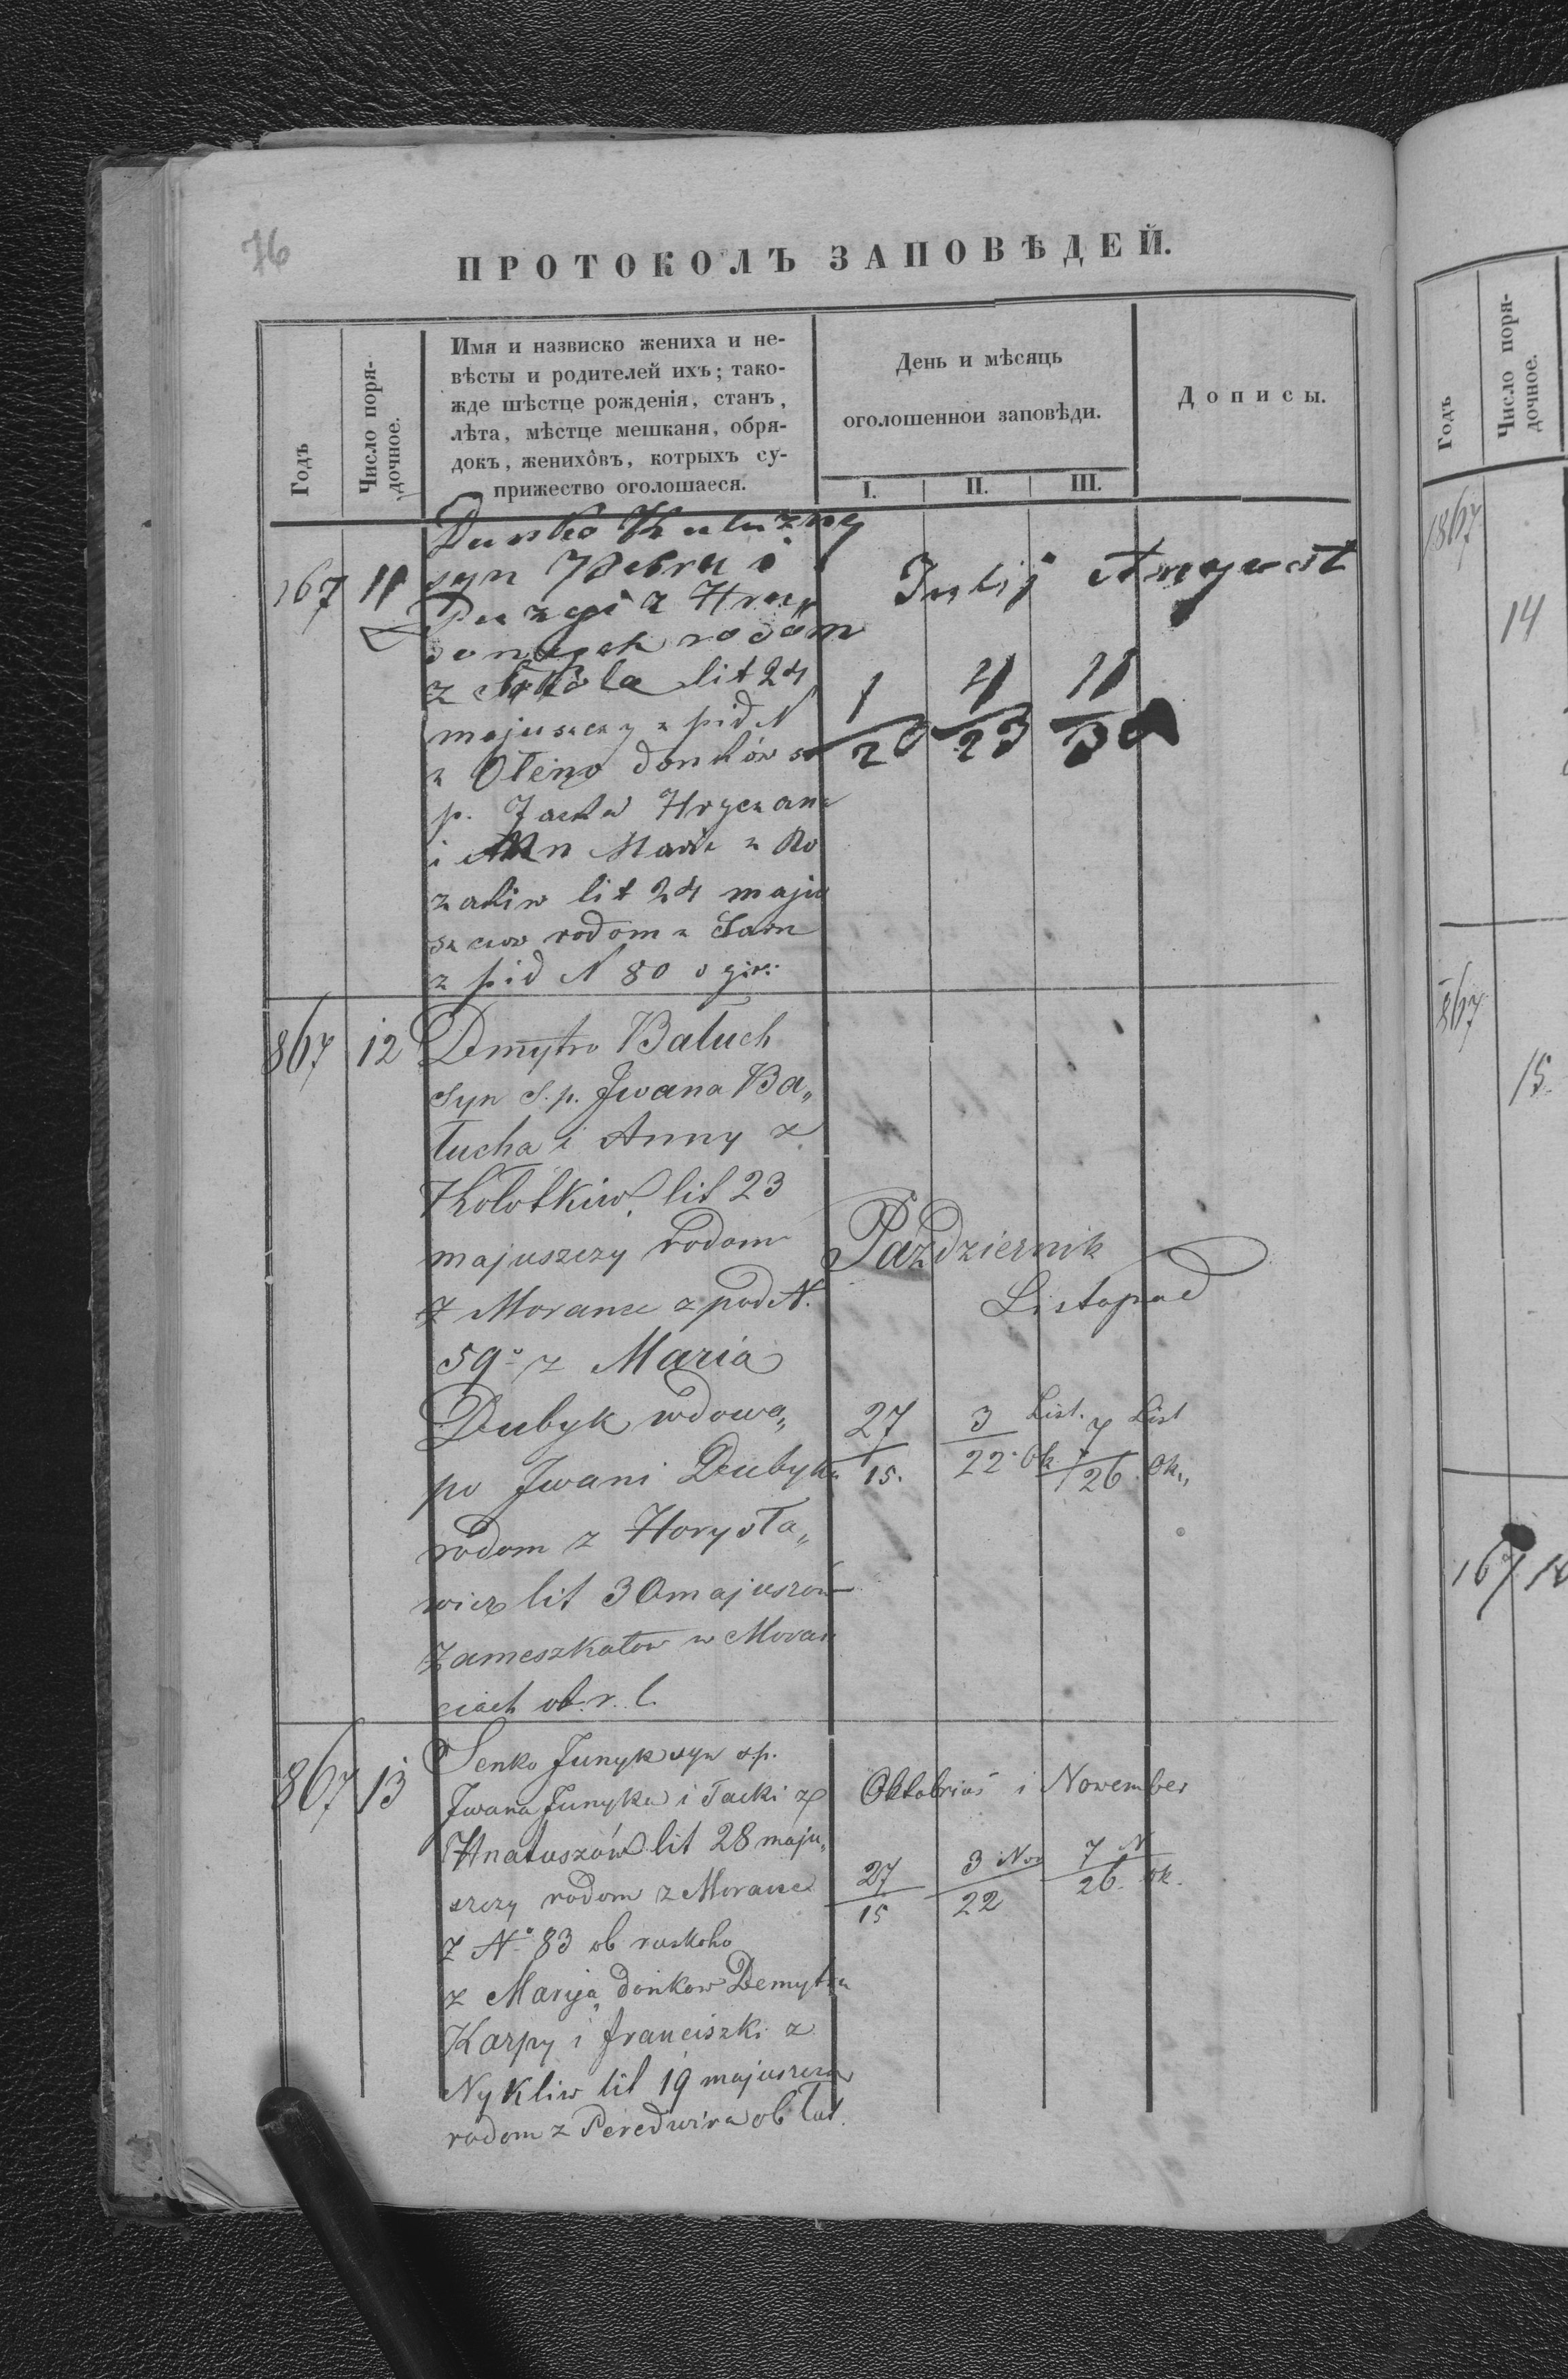 76
ПРОТОКОЛЪ ЗАПОВѢДЕЙ.
Годъ
Число поря-
дочное.
Имя и назвиско жениха и не-
вѣсты и родителей ихъ; тако-
жде шѣстце рожденія, станъ,
лѣта, мѣстце мешканя, обря-
докъ, женихôвъ, котрыхъ су-
прижество оголошаеся.
День и мѣсяць
оголошеннои заповѣди.
I. II. III.
Дописы.
167 11
syn i
rodom
z lit 24
majuszczy z pid N
z donków
p. Jacka
i z Ro
zakiw lit 24 maju
rodom z
z pid N 80
Julij Awgust
1 4 11
20 23 30
867 12 Dmytro Bałuch
Syn S. p. Jwana Ba„
łucha i Anny z
Kołotkiw lit 23
majuszczy rodom
z Moraniec z pod N.
59º z Maria
Dubyk wdowa„
po Jwani Dubyku
rodom z Horysła„
wicz lit 30 majuszcow
zameszkałow w Moran
ciach ob. r. l.
Październik
Listopad
27 3 List. 7 List
15. 22. Ok 26. Ok„
867 13 Senko Junyk syn s.p.
Jwana Junyka i Tacki z
Hnatuszów lit 28 maju„
szczy rodom z Moraniec
z Nº 83 ob ruskoho
z Maryją donkow Demytra
Karpy i franciszki z
Nykliw lit 19 majuszczow
rodom z Peredwira ob łat.
Oktobriuś i Nowember
27 3 Now 7 N
15 22 26. ok.
Годъ
Число поря-
дочное.
1867
14
867
15.
167